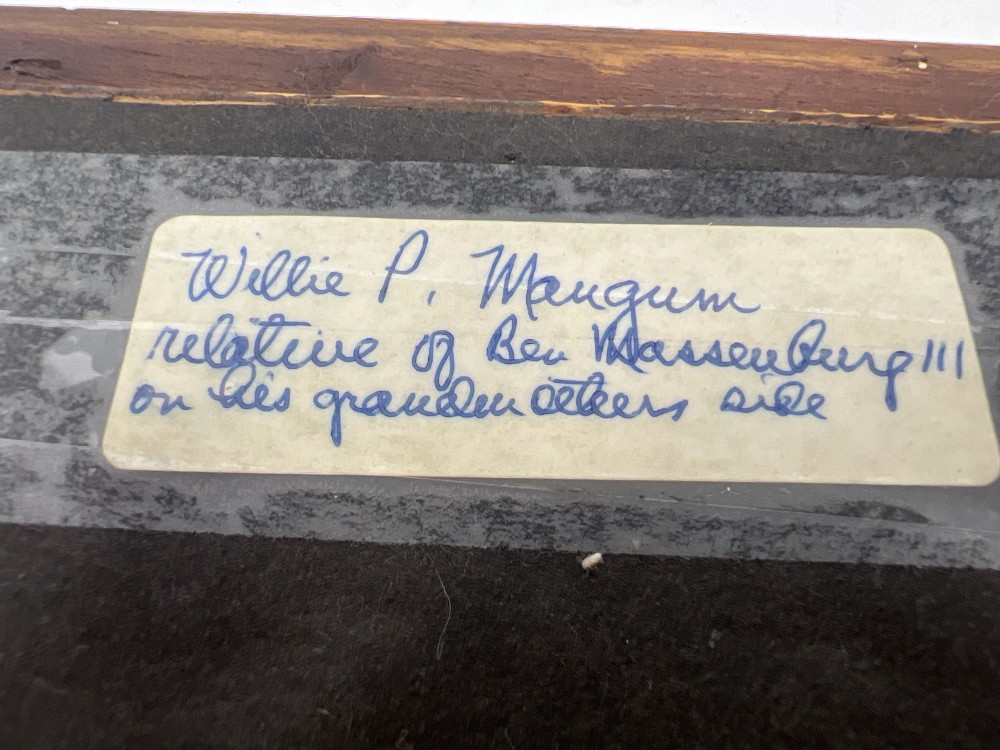 Willie P. Mangum
relative of Ben Massenburg III
on his grandmothers side